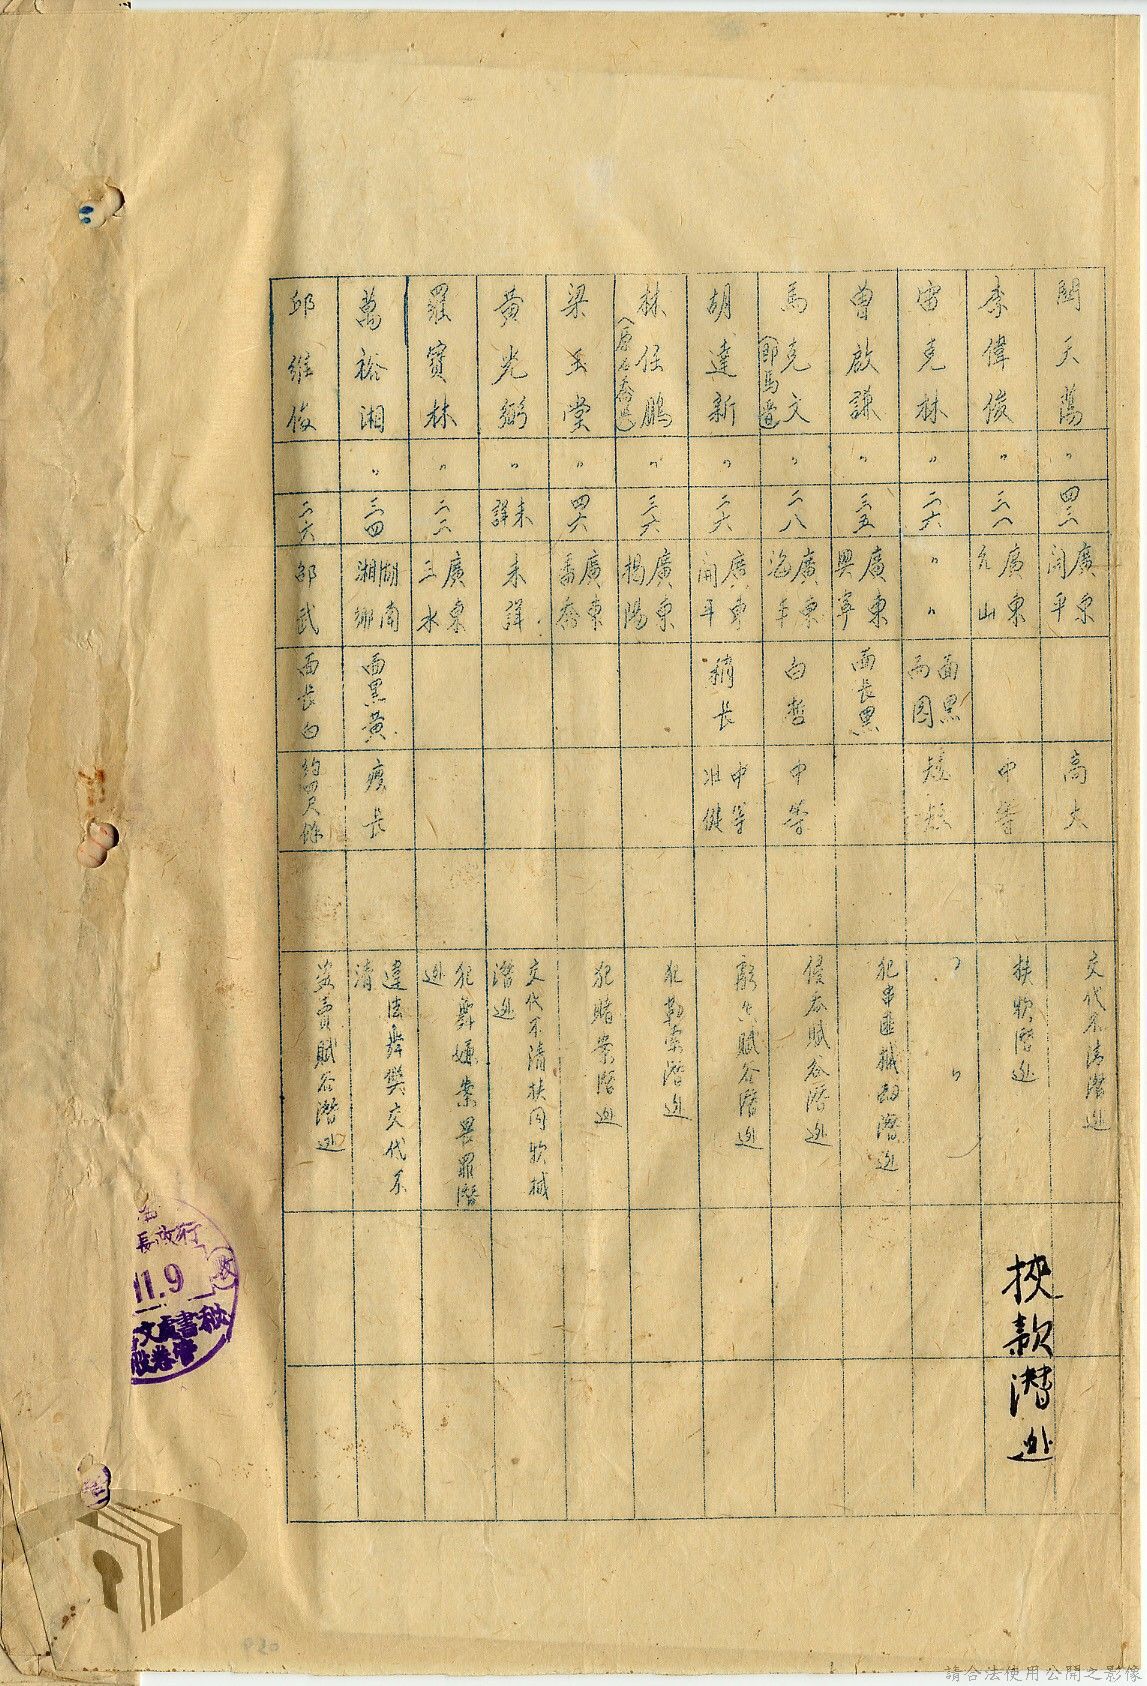 關天蔼 〃 四二 廣東開平 高大 交代不清潛逃
李偉俊 〃 三一 廣東 中等 挾款潛逃
挾款潛逃
甯克林 〃 二六 〃〃 面黑而圓 矮 〃 〃
曾啟謙 〃 三五 廣東興寧 面長黑 犯串匪械劫潛逃
馬克文(即馬晋) 〃 二八 廣東 白晳 中等 侵吞賦谷潛逃
胡達新 〃 二六 廣東開平 稍長 中等壯健 虧欠賦谷潛逃
林任鵬(原名喬) 〃 三六 廣東揭陽 犯勒索潛逃
梁玉堂 〃 四六 廣東番喬 犯賭案潛逃
黃光弼 〃 未詳 未詳 交代不清挾同款械
潛逃
羅寶林 〃 二二 廣東三水 犯舞嫌案畏罪潛
逃
萬裕湘 〃 三四 湖南湘鄉 面黑黃 瘦長 違法舞弊交代不
清
邱維俊 二六 邵武 面長白 約四尺餘 盜賣賦谷潛逃
長政行
11.9
文處書秘
管卷股
P20
請合法使用公開之影像